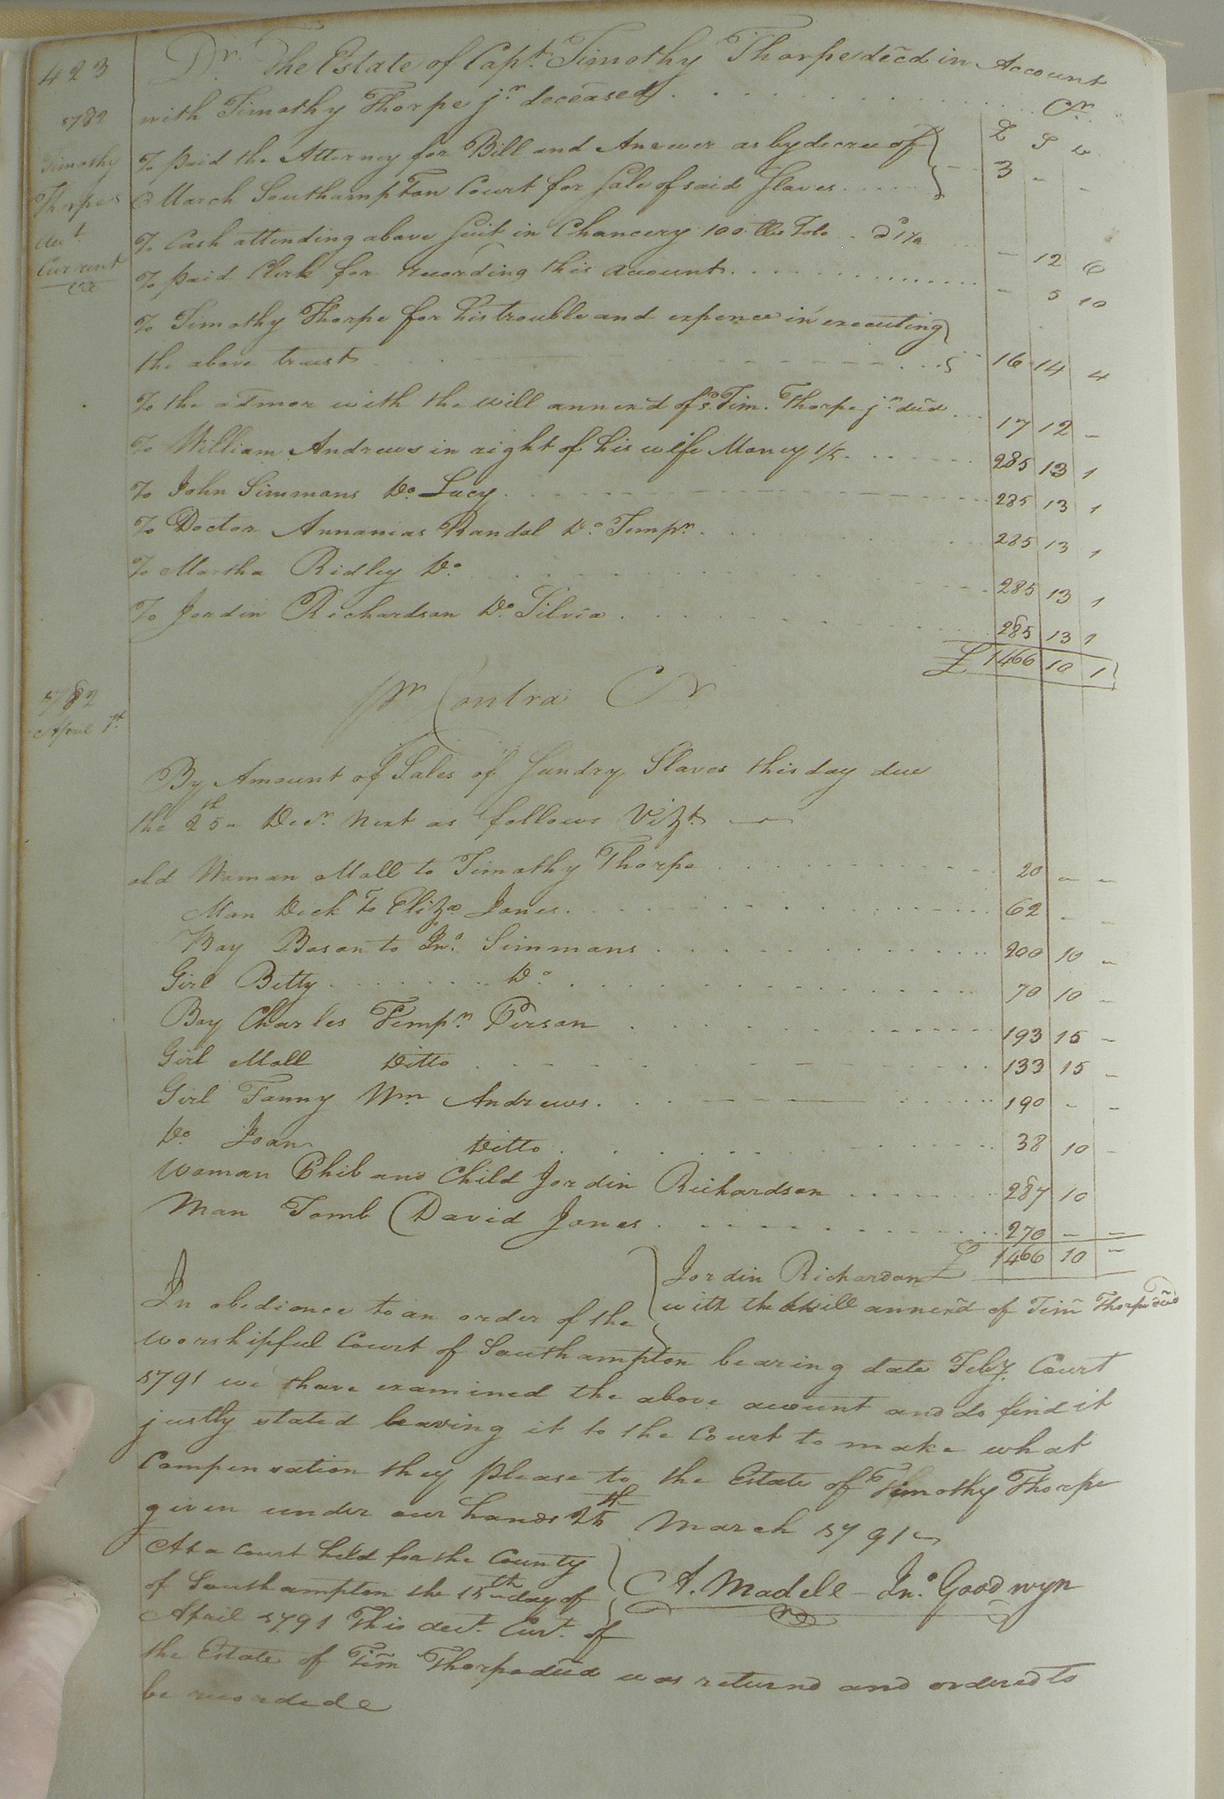 423
Dr. The Estate of Capt. Timothy Thorpe decd in Account
with Timothy Thorpe jr. deceased Cr
1782
Timothy
Thorpes
Acct.
Current
£ S D
To paid the Attorney for Bill and Answer as by decree of
March Southampton Court for Sale of said Slaves 3 - -
To Cash attending above Suit in Chancery 100 lbs Tobo - 12 6
To paid Clerk for recording this account - 5 10
To Timothy Thorpe for his trouble and expence in executing
the above trust 16 14 4
To the admor with the will annex'd of Tim. Thorpe jr. decd 17 12 -
To William Andrews in right of his wife 1/5 285 13 1
To John Simmons Do. Lucy 285 13 1
To Doctor Annanias Randal Do. Tempn. 285 13 1
To Martha Ridley Do. 285 13 1
To Jordin Richardson Do. Silvia 285 13 1
£ 1466 10 1
1782
April 1st
Pr Contra Cr
By Amount of Sales of Sundry Slaves this day due
the 25th Decr. next as follows Vizt.
old Woman Moll to Timothy Thorpe 20 - -
Man Dick To Eliza Jones 62 - -
Boy Bason to Jno. Simmans 200 10 -
Girl Betty Do 70 10 -
Boy Charles Tempn. Person 193 15 -
Girl Moll Ditto 133 15 -
Girl Fanny Wm Andrews 190 - -
Do. Joan Ditto 38 10 -
Woman Phib and Child Jordin Richardson 287 10
Man Tomb David Jones 270 - -
£ 1466 10 -
Jordin Richardson
with the Will annex'd of Tim Thorpe decd
In obedience to an order of the
Worshipful Court of Southampton bearing date Feby. Court
1791 we have examined the above account and do find it
justly stated leaving it to the Court to make what
Compensation they please to the Estate of Timothy Thorpe
given under our hands 25th March 1791
A. Madele Jno. Goodwyn
At a Court held for the County
of Southampton the 15th day of
April 1791 This Acct. Curt. of
the Estate of Tim Thorpe decd was returnd and ordered to
be recorded